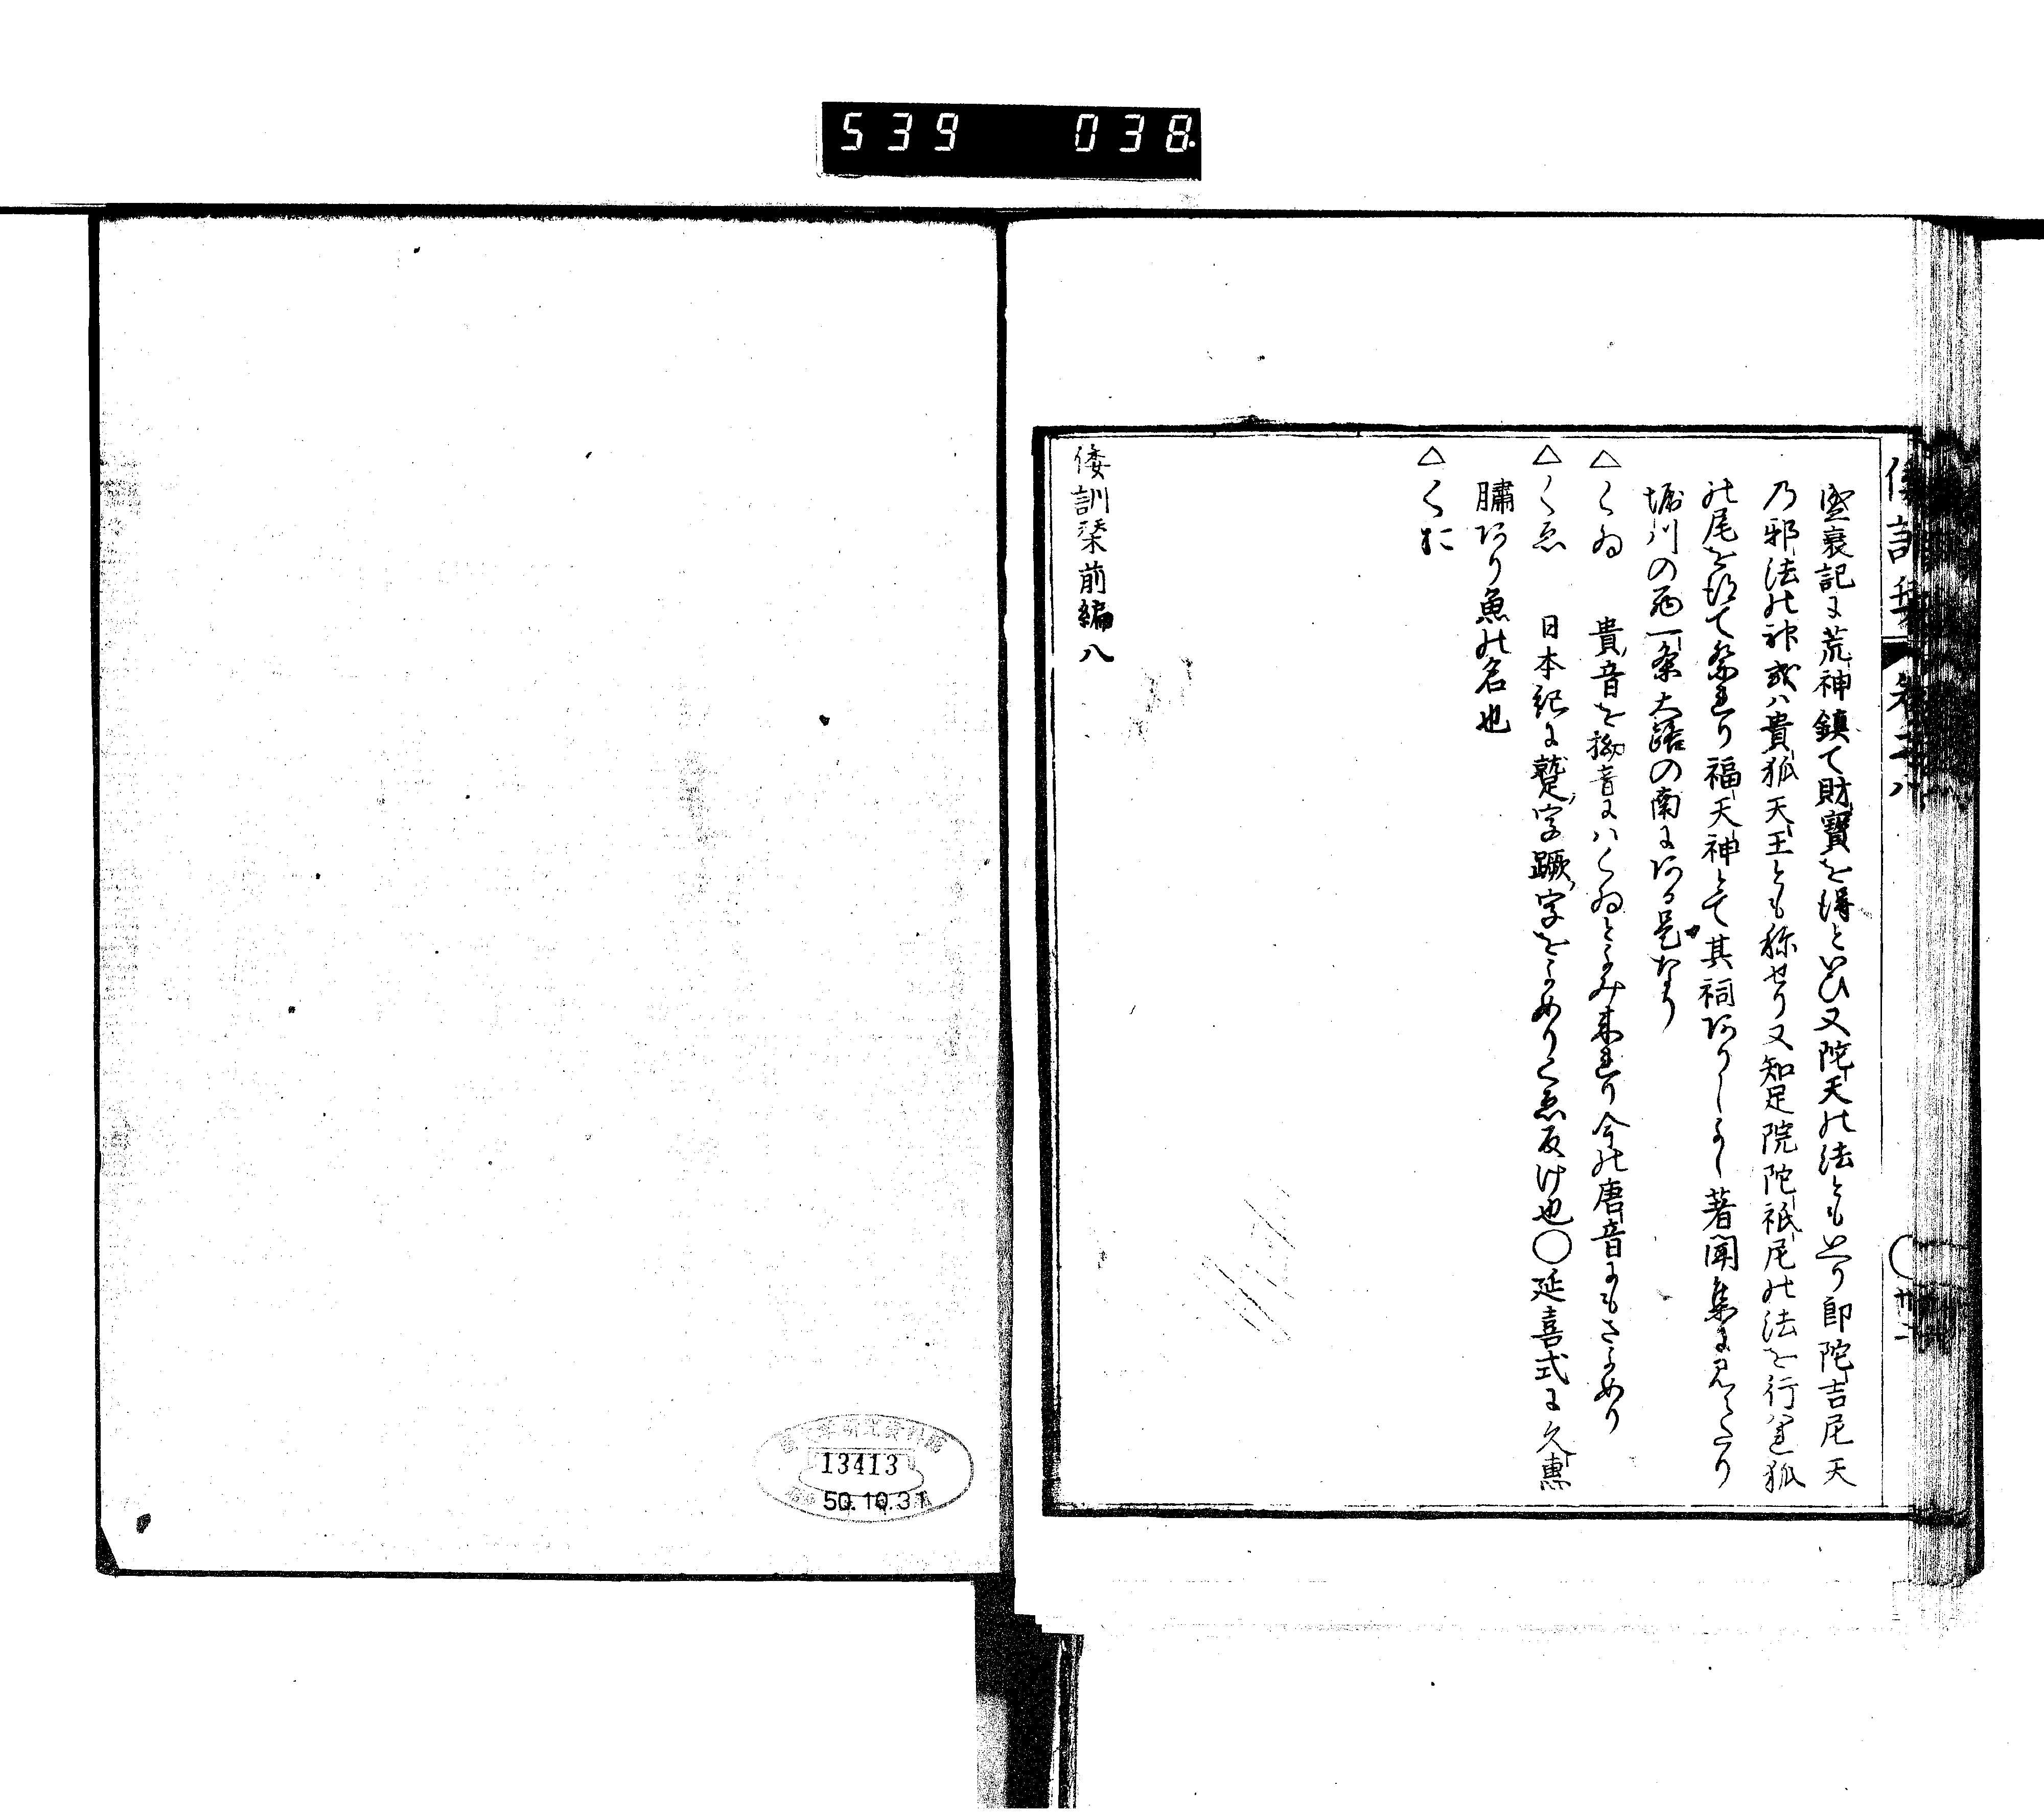 539 038
盛衰記に荒神鎮て財寶を得といひ又陀天の法とも云り即陀吉尼天
乃邪法の神或ハ貴狐天王とも称せり又知足院陀祇尼の法を行ハれ狐
の尾を得て祭れり福天神とて其祠ありしよし著聞集に見えたり
堀川の西一条大路の南にある是なり
△くゐ 貴音を拗音にハくゐとよみ来れり今の唐音にもさよめり
△くゑ 日本紀に蹵字蹶字をよめりくゑ反け也○延喜式に久恵
鱐あり魚の名也
△くお
倭訓栞前編八
13413
50.10.31